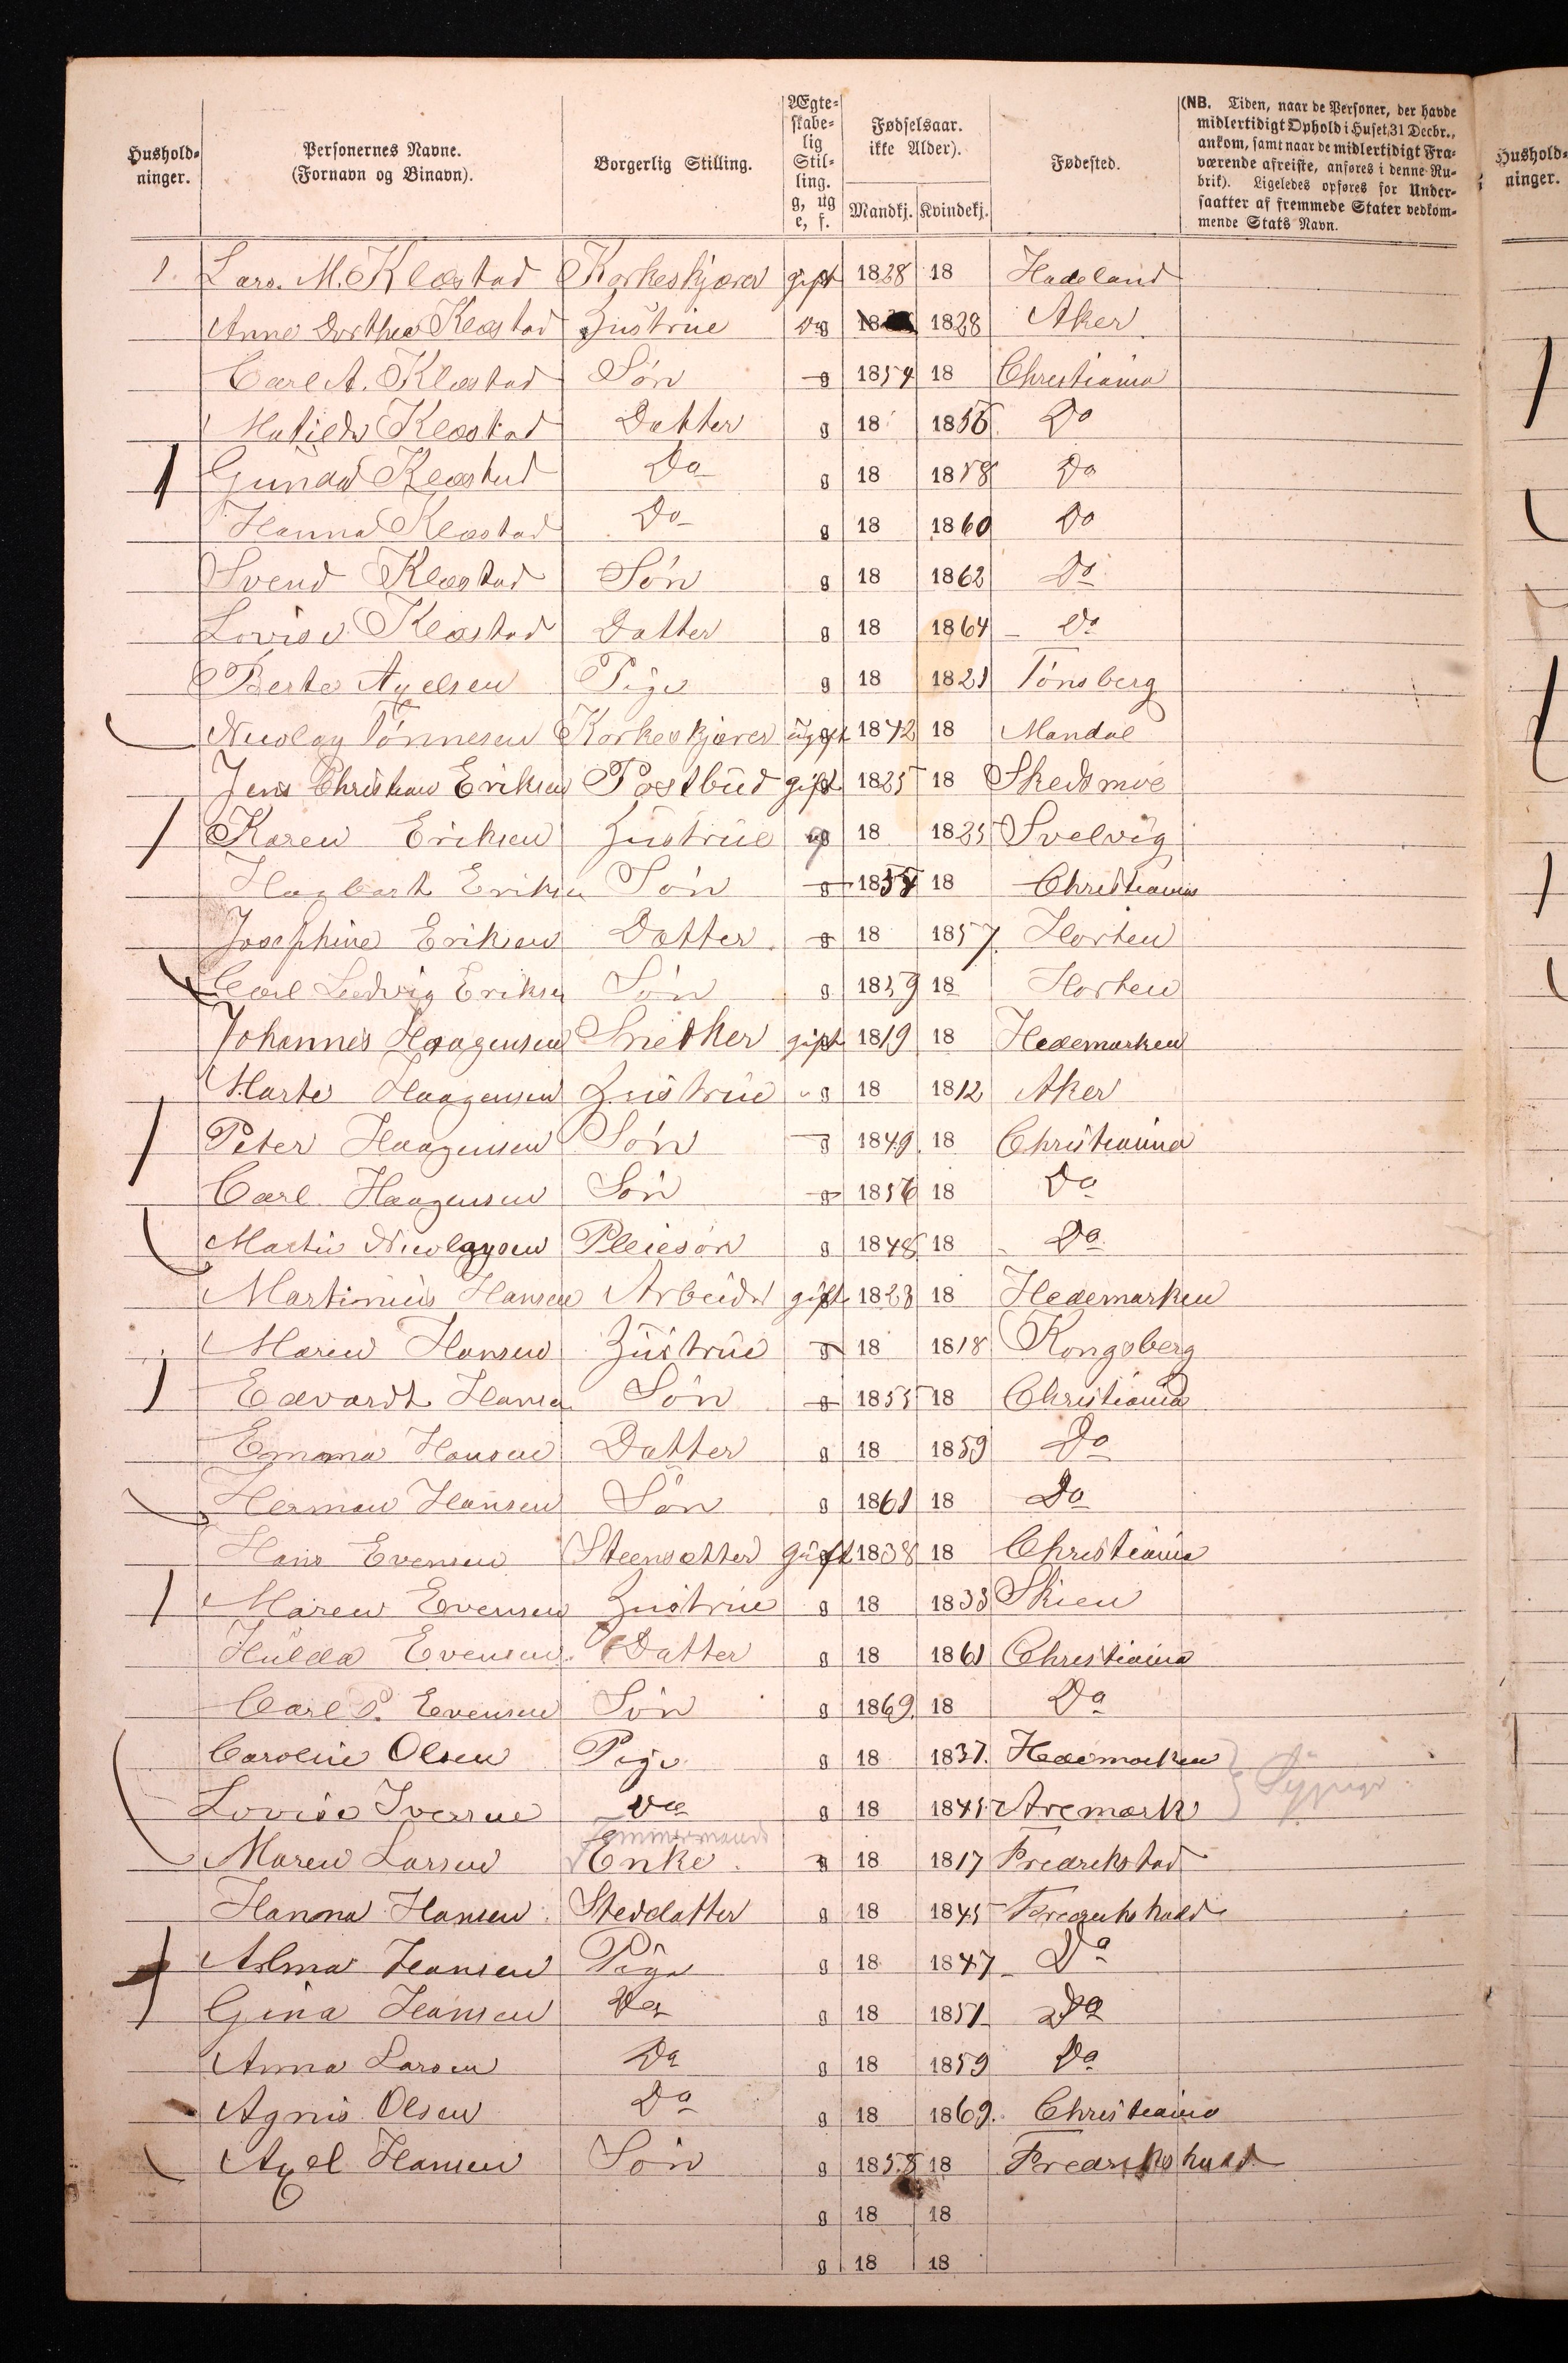 Hushold-
ninger.
Personernes Navne.
(Fornavn og Binavn).
Borgerlig Stilling.
Ægte-
skabe-
lig
Stil-
ling.
g, ug
e, f.
Fødselsaar.
ikke Alder).
Mandkj. Kvindekj.
Fødested.
(NB. Tiden, naar de Personer, der havde
midlertidigt Ophold i Huset, 31 Decbr.,
ankom, samt naar de midlertidigt Fra-
værende afreiste, anføres i denne Ru-
brik). Ligeledes opføres for Under-
saatter af fremmede Stater vedkom-
mende Stats Navn.
Hushold-
ninger.
1. Lars. M. Klæstad Korkeskjærer gift 1828 18 Hadeland
Anne Dorthea Klæstad Hustrue Do g 18 1828 Aker
Carl A. Klæstad Søn g 1854 18 Christiania
Matilda Klæstad Datter g 18 1856 Do
Gunda Klæstad Do g 18 1858 Do
Hanna Klæstad Do g 18 1860 Do
Svend Klæstad Søn g 18 1862 Do
Lovise Klæstad Datter g 18 1864 Do
Berte Axelsen Pige g 18 1821 Tønsberg
Nicolay Tønnesen Korkeskjærer ugift 1842 18 Mandal
Jens Christian Eriksen Postbud gift 1825 18 Skedsmoe
Karen Eriksen Hustrue g 18 1825 Svelvig
Hagbart Eriksen Søn g 1854 18 Christiania
Josephine Eriksen Datter g 18 1857. Horten
Carl Ludvig Eriksen Søn g 1859 18 Horten
Johannes Haagensen Snedker gift 1819 18 Hedemarken
Marte Haagensen Hustrue g 18 1812 Aker
Peter Haagensen Søn g 1849. 18 Christiania
Carl Haagensen Søn g 1856 18 Do
Martin Nicolaysen Pleiesøn g 1848 18 Do
Martinius Hansen Arbeider gift 1823 18 Hedemarken
Maren Hansen Hustrue g 18 1818 Kongsberg
Edvardt Hansen Søn g 1855 18 Christiania
Emma Hansen Datter g 18 1859 Do
Herman Hansen Søn g 1861 18 Do
Hans Evensen Steensætter gift 1838 18 Christiania
Maren Evensen Hustrue g 18 1838 Skien
Hulda Evensen. Datter g 18 1861 Christiania
Carl P. Evensen Søn g 1869. 18 Do
Caroline Olsen Pige g 18 1837. Hedemarken
Lovise Iversen Do g 18 1845 Aremark } Sypiger
Tømmermands
Maren Larsen Enke g 18 1817 Fredrikstad
Hanna Hansen Steddatter g 18 1845 Fredrikshald
Alma Hansen Pige g 18 1847 Do
Gina Hansen Do g 18 1851 Do
Anna Larsen Do g 18 1859 Do
Agnis Olsen Do g 18 1869. Christiania
Axel Hansen Søn g 1858 18 Fredrikshald
g 18 18
g 18 18